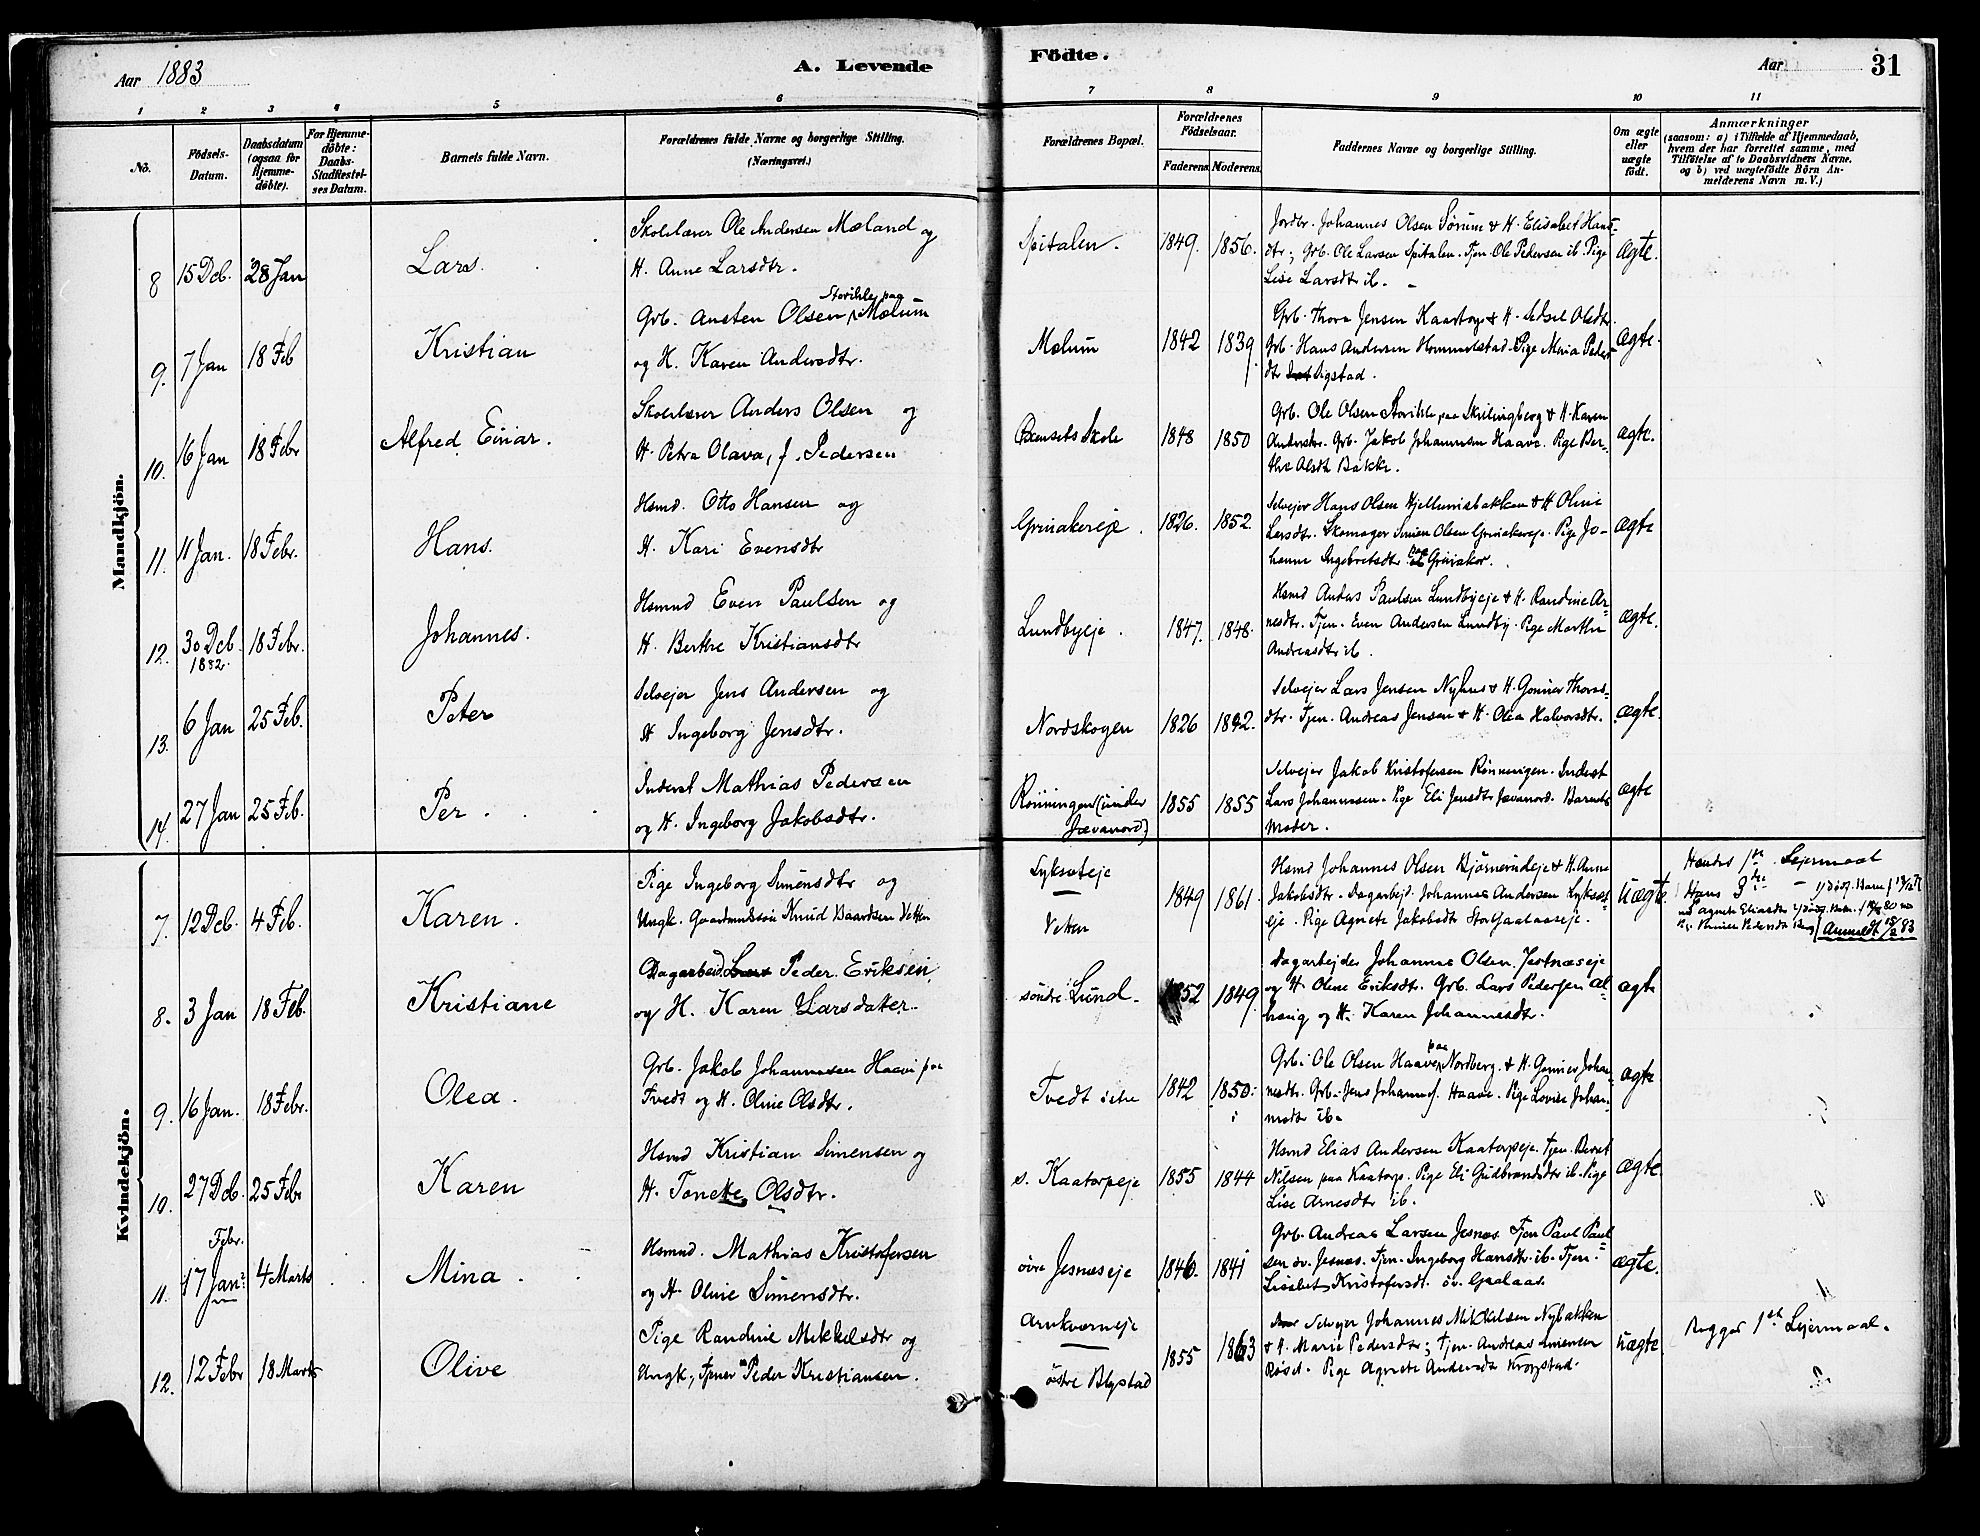 Aar 1883
A. Levende
Födte.
Aar
31
1 2 3 4 5 6 7 8 9 10 11
No.
Födsels-
Datum.
Daabsdatum
(ogsaa for
Hjemme-
döbte).
For Hjemme-
döbte:
Daabs-
Stadfæstel-
ses Datum.
Barnets fulde Navn.
Forældrenes fulde Navne og borgerlige Stilling.
(Næringsvei.)
Forældrenes Bopæl.
Forældrenes
Födselsaar.
Faderens. Moderens.
Faddernes Navne og borgerlige Stilling.
Om ægte
eller
uægte
födt.
Anmærkninger
(saasom: a) i Tilfælde af Hjemmedaab,
hvem der har forrettet samme, med
Tilföielse af to Daabsvidners Navne.
og b) ved uægtefödte Börn An-
melderens Navn m. V.)
Mandkjön.
8 15 Dcb. 28 Jan Lars.
Skolelærer Ole Andersen Moeland og
H. Anne Larsdtr.
Spitalen. 1849. 1856.
Jordbr. Johannes Olsen Sörum & H. Elisabet Hans-
dtr; Grb. Ole Larsen Spitalen. Tjen. Ole Pedersen ib. Pige
Lise Larsdtr ib. -
Ægte.
9. 7 Jan 18 Feb Kristian
Storihle paa
Grb. Ansten Olsen, Mælum
og H. Karen Andersdtr.
Mælum 1842 1839
Grb. Thora Jensen Kaatorp & H. Sidsel Olsdtr.
Grb. Hans Andersen Hommelstad. Pige Maria Peders-
dtr Sigstad.
Ægte.
10. 16 Jan 18 Febr Alfred Einar.
Skolelærer Anders Olsen og
H. Petra Olava, f. Pedersen
Bænsets Skole 1848 1850
Grb. Ole Olsen Storihle paa Skrilingberg & H. Karen
Andersdtr. Grb. Jakob Johannesen Haave. Pige Ber-
the Olsdt Bakke.
Ægte.
11. 11 Jan. 18 Febr. Hans.
Hsmd. Otto Hansen og
H. Kari Evensdtr
Griniakereje. 1826. 1852.
Selvejer Hans Olsen Hjellumsbakken & H. Oline
Larsdtr. Skomager Simen Olsen Griniakereje. Pige Jo-
hanne Ingebretsdtr paa Griniaker.
Ægte
12. 30 Dcb. 1882. 18 Febr. Johannes.
Hsmnd Even Paulsen og
H. Berthe Kristiansdtr
Lundbyeje. 1847. 1848.
Hsmd Anders Paulsen Lundbyeje & H. Randine Ar-
nesdtr. Tjen. Even Andersen Lundby. Pige Marthe
Andreasdtr ib.
Ægte.
13. 6 Jan 25 Feb. Peter
Selvejer Jens Andersen og
H Ingeborg Jensdtr.
Nordskogen 1826 1842.
Selvejer Lars Jensen Nyhus & H. Gunver Thoras-
dtr. Tjen. Andreas Jensen & H. Olea Halvorsdtr.
Ægte.
14. 27 Jan 25 Feb. Per.
Inderst Mathias Pedersen
og H. Ingeborg Jakobsdtr.
Rönningen (under
Jævanord) 1855 1855
Selvejer Jakob Kristofersen Rönningen. Inderst
Lars Johannesen. Pige Eli Jensdtr Jævanord. Barnets
Moder.
Ægte
Kvindekjön.
7. 12 Dcb. 4 Feb. Karen.
Pige Ingeborg Simensdtr og
Ungk. Gaardmandssön Knud Baardsen Vetten
Lykseteje
Vetten 1849 1861.
Hsmd Johannes Olsen Björnerudeje & H. Anne
Jakobsdtr. Dagarbejd. Johannes Andersen Lykset-
eje. Pige Agnete Jakobsdtr Stor Gaalaaseje.
Uægte.
Hendes 1ste Lejermaal
Hans 3die
Anmeldt 18/2 83
8. 3 Jan 18 Feb. Kristiane
Dagarbeid. Peder Eriksen
og H. Karen Larsdatter.
söndre Lund. 1852 1849
Dagarbejder Johannes Olsen Jestnæseje
og H. Oline Eriksdtr. Grb. Lars Pedersen Al-
haug og H. Karen Johannesdtr.
Ægte
9. 16 Jan. 18 Febr. Olea.
Grb. Jakob Johannesen Haave paa
Tvedt og H. Oline Olsdtr.
Tvedt 1842 1850.
Grb. Ole Olsen Haave paa Nordberg. & H. Gunver Johan-
nesdtr. Grb. Jens Johannes. Haave. Pige Lovise Johan-
nesdtr ib.
Ægte
10. 27 Dcb. 25 Febr Karen
Hsmd Kristian Simensen og
H. Tonette Olsdtr.
s. Kaatorpeje 1855 1844
Hsmd Elias Andersen Kaatorpeje. Tjen. Bernt
Nilsen paa Kaatorp. Pige Eli Gudbrandsdtr ib. Pige
Lise Arnesdtr ib.
Ægte.
11. Febr. 17 Jan? 4 Marts Mina.
Hsmnd. Mathias Kristofersen
og H. Oline Simensdtr.
övre Jesnæseje 1846. 1841
Grb. Andreas Larsen Jesnæs. Tjen. Paul Paul-
sen öv. Jesnæs. Tjen. Ingeborg Hansdtr. ib. Tjen.
Lisabet Kristofersdt. öv. Gaalaas.
Ægte.
12. 12 Febr 18 Marts Olive
Pige Randine Mikkelsdtr og
Ungk., Tjener Peder Kristiansen.
Arnkværneje
östre Blystad 1855 1863
Selvejer Johannes Mikkelsen Nybakken
& H. Marie Pedersdtr; Tjen. Andreas Simensen
Röset. Pige Agnete Andersdtr Kropstad.
Uægte.
Begges 1ste Lejermaal.